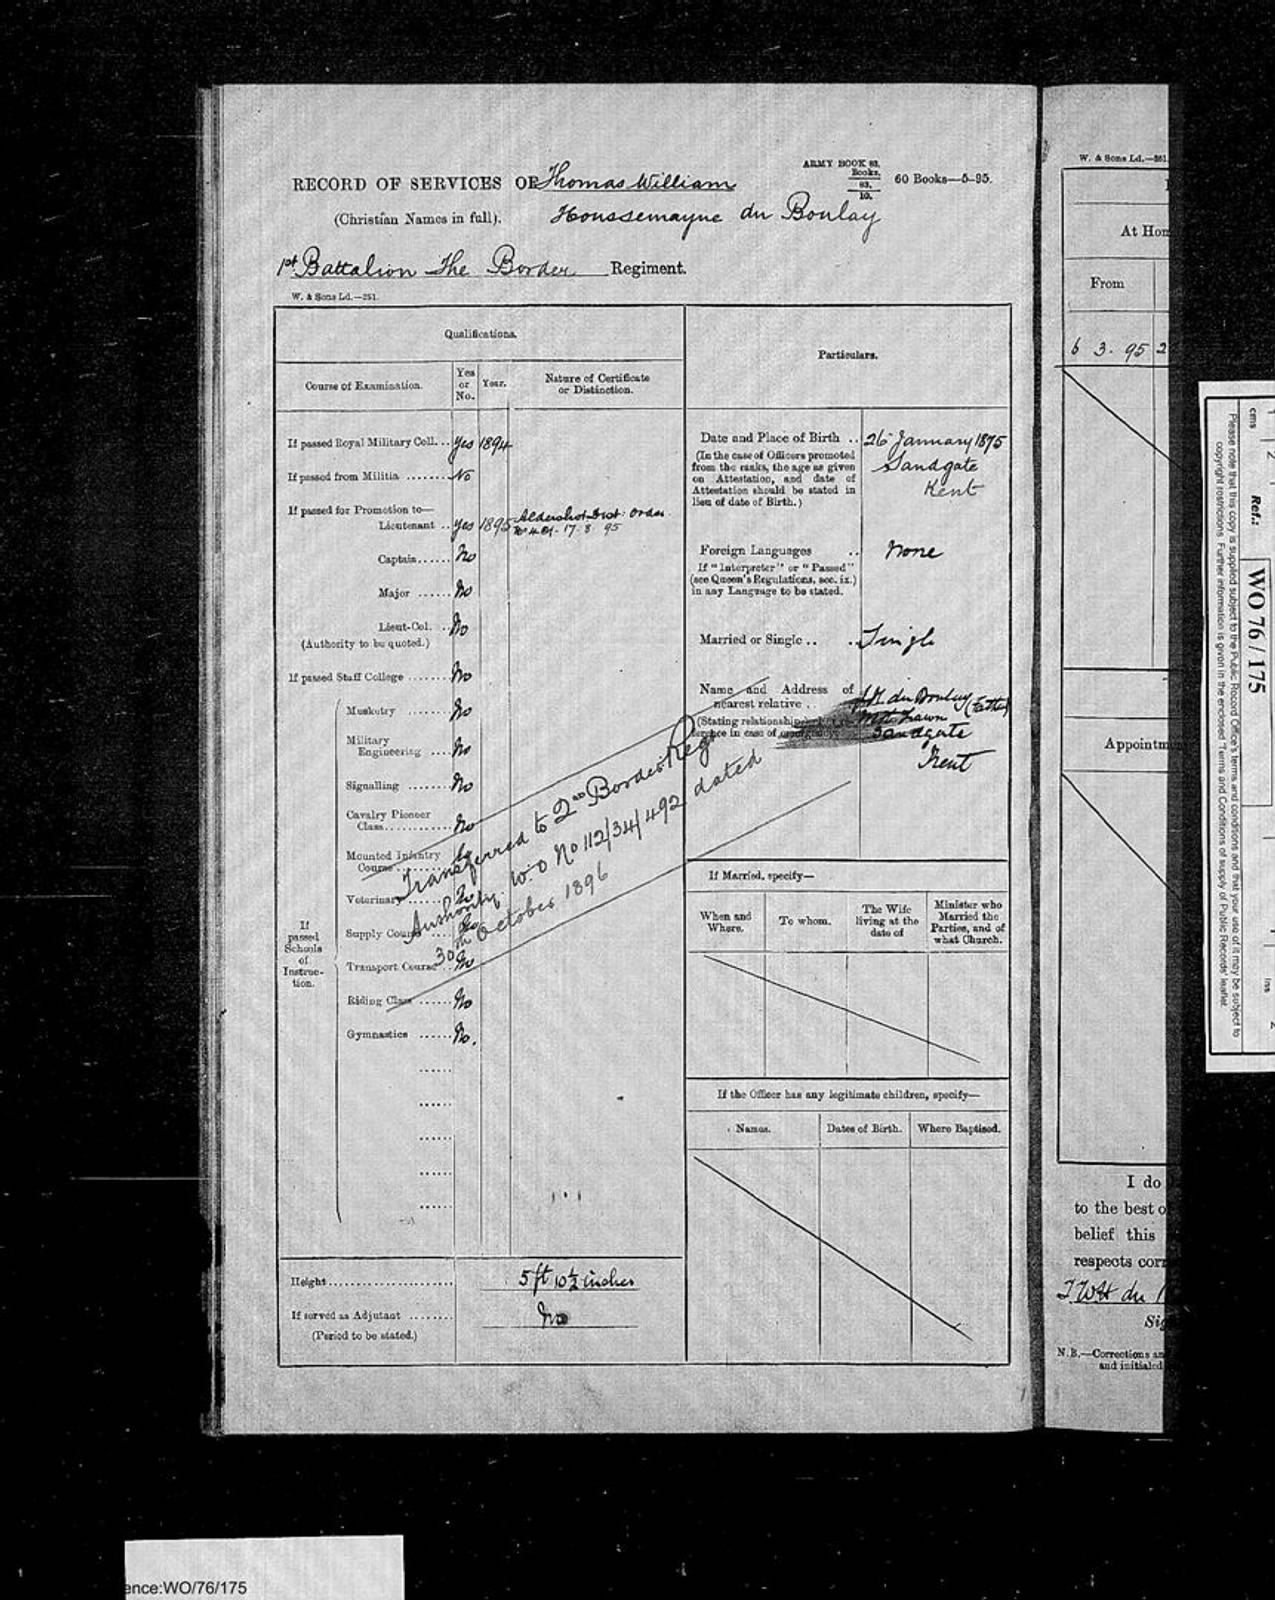 ARMY BOOK 83.
Books.
83.
10.
60 Books—5-95.
RECORD OF SERVICES OF Thomas William
(Christian Names in full). Houssemayne du Boulay
1st Battalion The Border Regiment.
W. & Sons Ld.—251.
Qualifications.
Course of Examination. Yes or No. Year. Nature of Certificate or Distinction.
If passed Royal Military Coll... Yes 1894
If passed from Militia ........ No
If passed for Promotion to—
Lieutenant .. Yes 1895 Aldershot Dist: Order
17. 8. 95
Captain...... No
Major ...... No
Lieut-Col. .. No
(Authority to be quoted.)
If passed Staff College ....... No
If passed Schools of Instruction.
Musketry ...... No
Military
Engineering .... No
Signalling ....... No
Cavalry Pioneer
Class............ No
Mounted Infantry
Course......... No
Veterinary ...... No
Supply Course .... No
Transport Course .. No
Riding Class ...... No
Gymnastics ...... No.
Transferred to 2nd Border Reg
Authority W.O No 112/34/492 dated
30th October 1896
Height........................ 5 ft 10½ inches
If served as Adjutant ........ No
(Period to be stated.)
Particulars.
Date and Place of Birth .. 26 January 1875
(In the case of Officers promoted
from the ranks, the age as given
on Attestation, and date of
Attestation should be stated in
lieu of date of Birth.)
Sandgate
Kent
Foreign Languages .. None
If "Interpreter" or "Passed"
(see Queen's Regulations, sec. ix.)
in any Language to be stated.
Married or Single .. .. Single
Name and Address of
nearest relative .
(Stating relationship
in case of
du Boulay (Father)
Sandgate
Kent
If Married, specify—
When and Where. To whom. The Wife living at the date of Minister who Married the Parties, and of what Church.
If the Officer has any legitimate children, specify—
Names. Dates of Birth. Where Baptised.
W. & Sons Ld.—251.
At Hom
From
6 3. 95 2
Appointm
I do
to the best o
belief this
respects corr
T W H du
Sig
N.B.—Corrections an
and initialed
cms
ins
Ref.: WO 76 / 175
Please note that this copy is supplied subject to the Public Record Office's terms and conditions and that your use of it may be subject to
copyright restrictions. Further information is given in the enclosed 'Terms and Conditions of supply of Public Records' leaflet
ence:WO/76/175